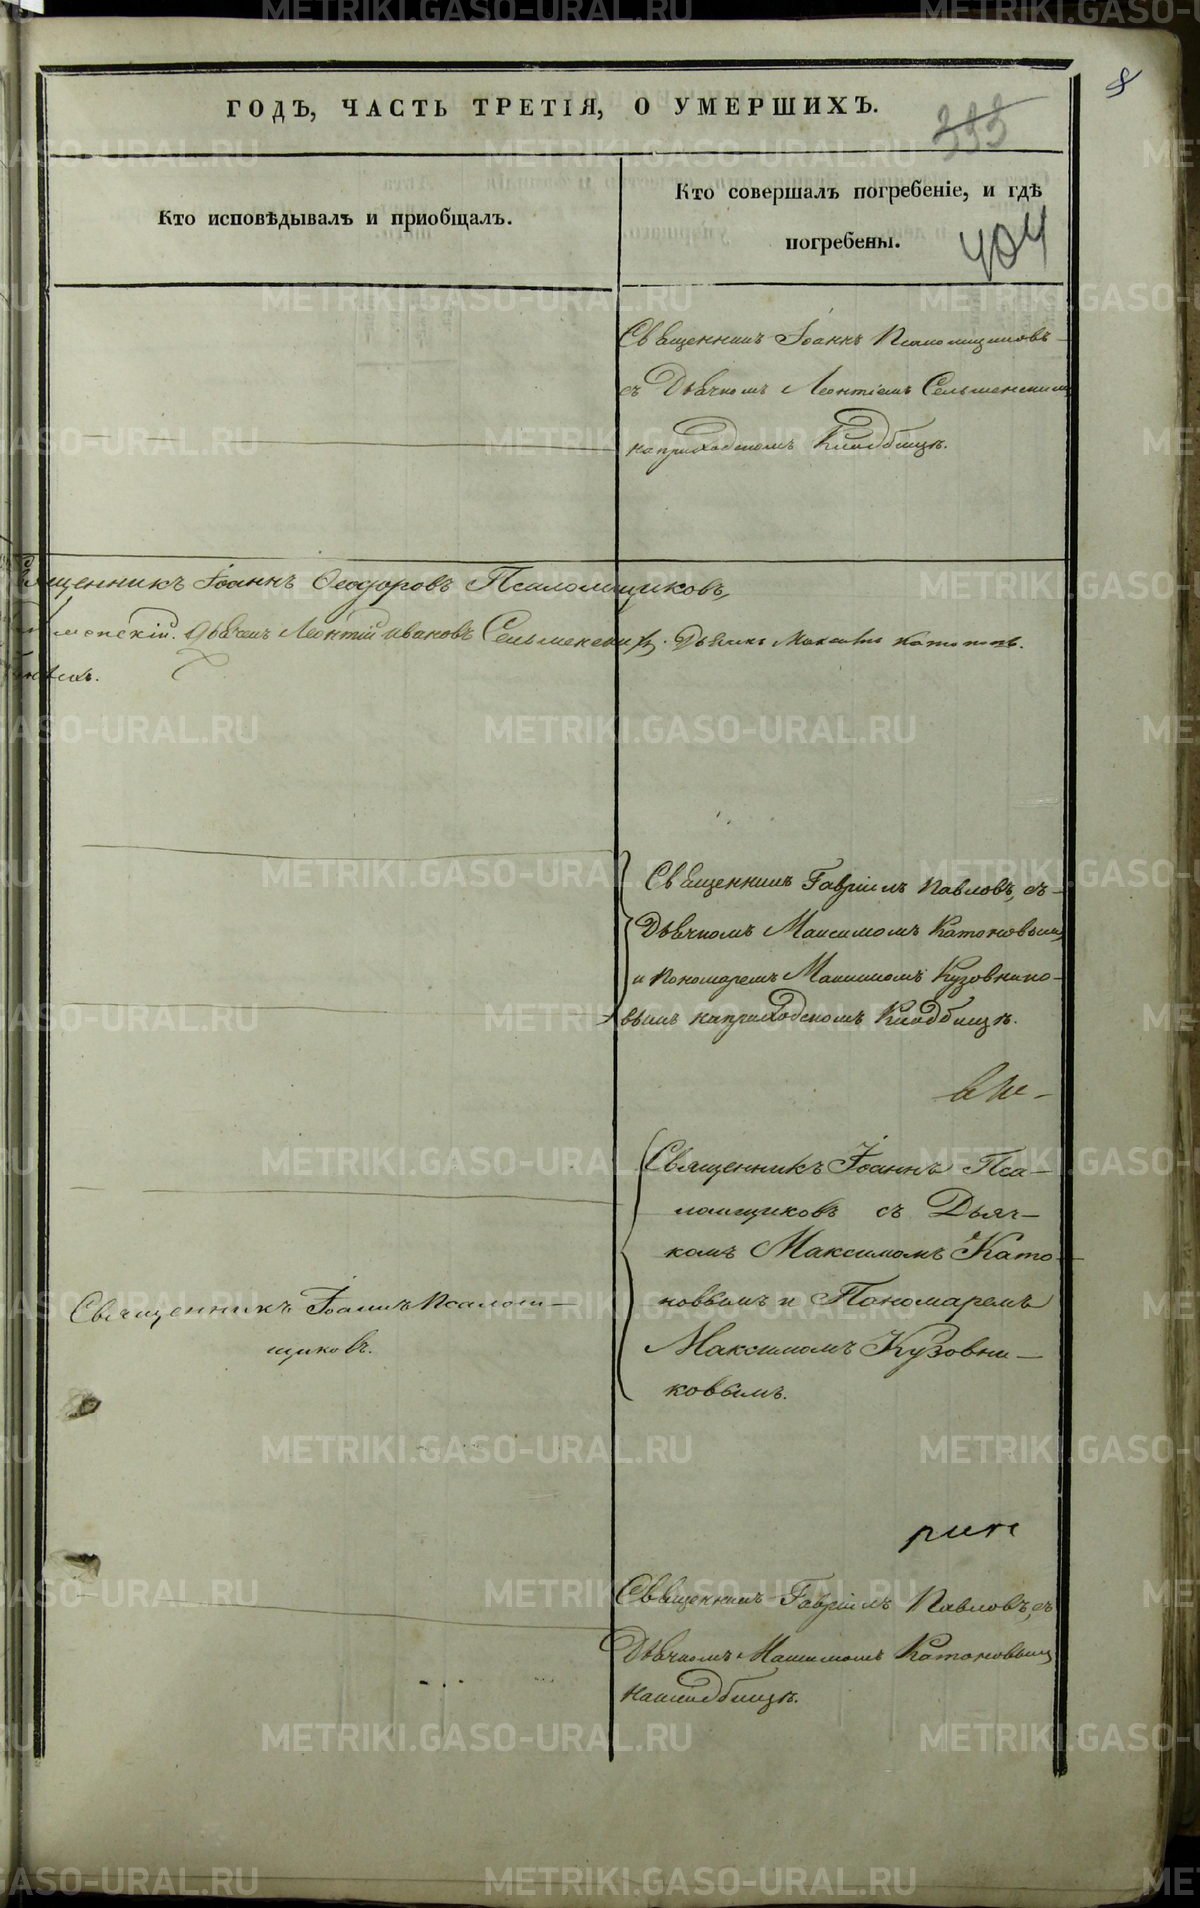 8
ГОДЪ, ЧАСТЬ ТРЕТІЯ, О УМЕРШИХЪ.
333
Кто исповѣдывалъ и пріобщалъ.
Кто совершалъ погребеніе, и гдѣ
погребены.
404
Священникъ Іоаннъ Псаломщиковъ
съ Дьячкомъ Леонтіемъ Сельменскимъ
на приходскомъ Кладбищѣ.
Священникъ Іоаннъ Ѳеодоровъ Псаломщиковъ,
Дьячекъ Леонтій Ивановъ Сельменскій. Дьячекъ Максимъ Катоновъ.
Священникъ Гавріилъ Павловъ, съ
Дьячкомъ Максимомъ Катоновымъ
и Пономаремъ Максимомъ Кузовнико-
вымъ на приходскомъ Кладбищѣ.
Священникъ Іоаннъ Пса-
ломщиковъ съ Дьяч-
комъ Максимомъ Като-
новымъ и Пономаремъ
Максимомъ Кузовни-
ковымъ.
Священникъ Іоаннъ Псалом-
щиковъ.
Священникъ Гавріилъ Павловъ, съ
Дьячкомъ Максимомъ Катоновымъ
на кладбищѣ.
METRIKI.GASO-URAL.RU